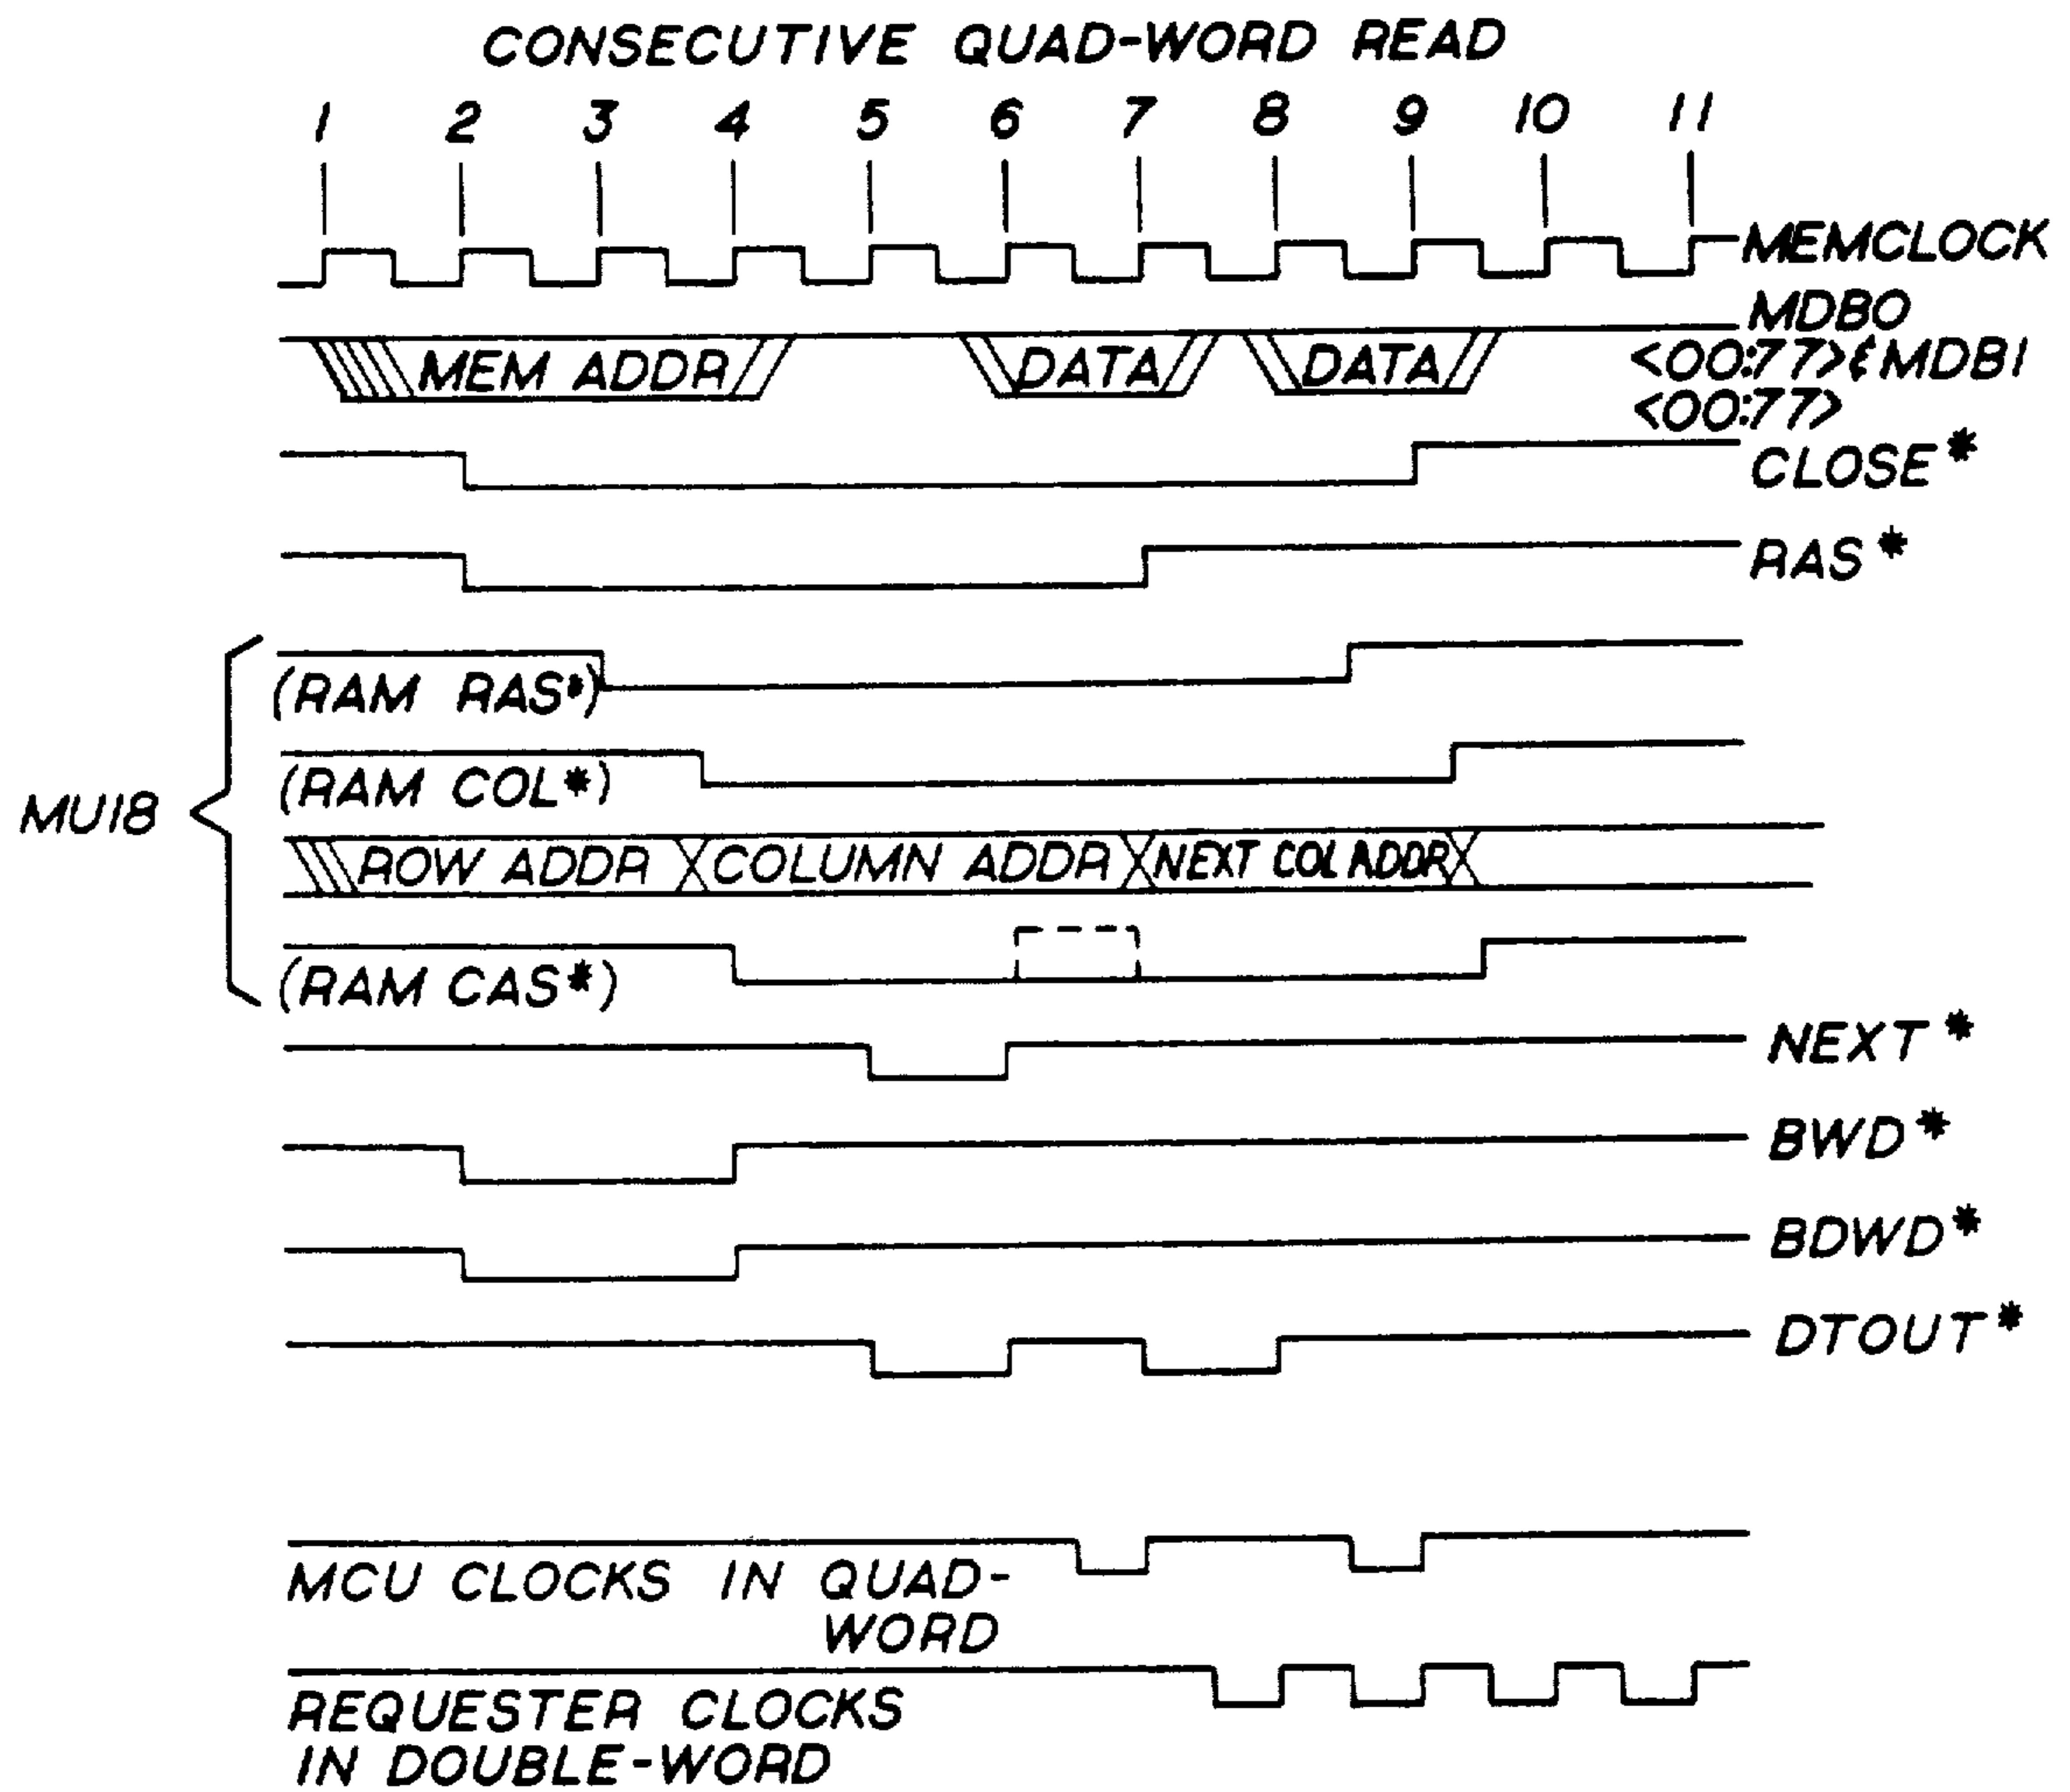 CONSECUTIVE QUAD-WORD READ
1 2 3 4 5 6 7 8 9 10 11
MEMCLOCK
MDBO
<00:77>&MDBI
<00:77>
MEM ADDR
DATA
DATA
CLOSE*
RAS*
(RAM RAS*)
(RAM COL*)
MUI8
ROW ADDR
COLUMN ADDR
NEXT COL ADDR
(RAM CAS*)
NEXT*
BWD*
BDWD*
DTOUT*
MCU CLOCKS IN QUAD-
WORD
REQUESTER CLOCKS
IN DOUBLE-WORD